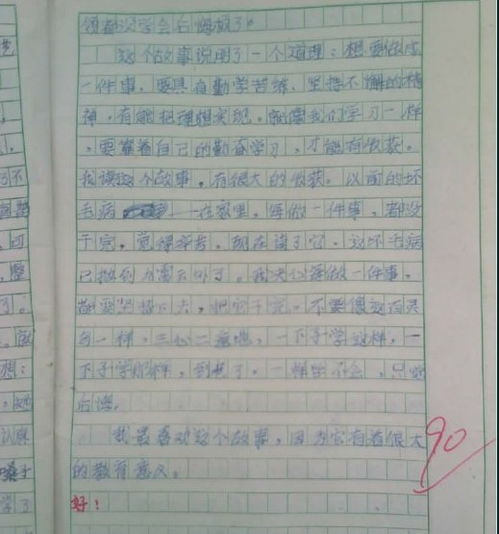 领都没学会后悔极了。
这个故事说明了一个道理：想要做成
一件事，要具有勤学苦练、坚持不懈的精
神，才能把理想实现。就像我们学习一样
，要靠着自己的勤奋学习，才能有收获。
我读这个故事，有很大的收获。以前的坏
毛病 一在家里，每做一件事，都没
干完，觉得辛苦。现在读了它，这坏毛病
已抛到九霄云外了。我决心每做一件事，
都要坚持下去，把它干完。不要像这百灵
鸟一样，三心二意地，一下子学这样，一
下子学那样，到头了，一样学不会，只好
后悔。
我最喜欢这个故事，因为它有着很大
的教育意义。
90
好！